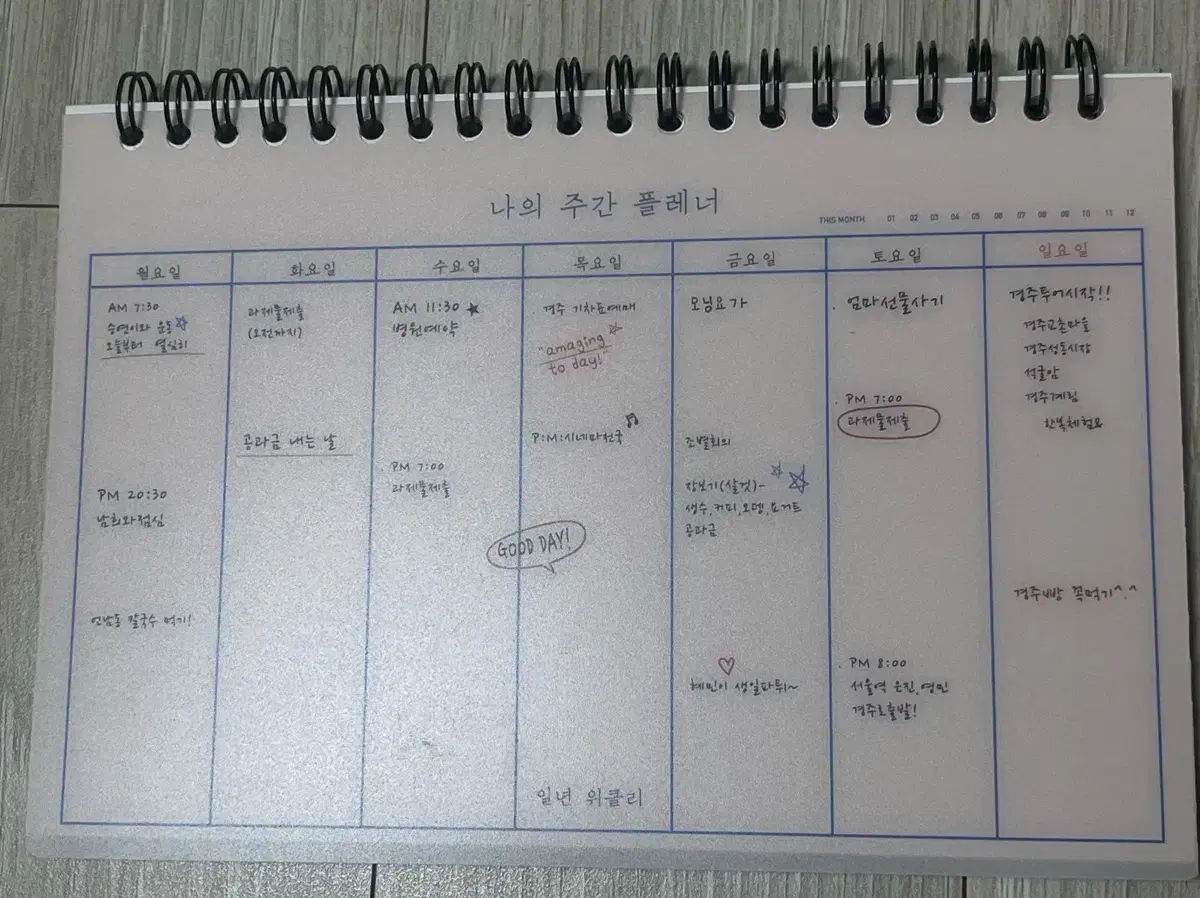 나의 주간 플레너
THIS MONTH 01 02 03 04 05 06 07 08 09 10 11 12
월요일
AM 7:30
승연이와 운동
오늘부터 열심히
PM 20:30
남희와점심
연남동 칼국수 먹기!
화요일
과제물제출
(오전까지)
공과금 내는 날
수요일
AM 11:30
병원예약
PM 7:00
과제물제출
GOOD DAY!
목요일
경주 기차표예매
"amaging
to day!"
P:M:시네마천국
일년 위클리
금요일
모닝요가
조별회의
장보기(살것)-
생수,커피,오뎅,요거트
공과금
혜민이 생일파튀~
토요일
엄마선물사기
PM 7:00
과제물제출
PM 8:00
서울역 은진,영민
경주로출발!
일요일
경주투어시작!!
경주교촌마을
경주성동시장
석굴암
경주계림
한복체험요
경주빵 꼭먹기^.^